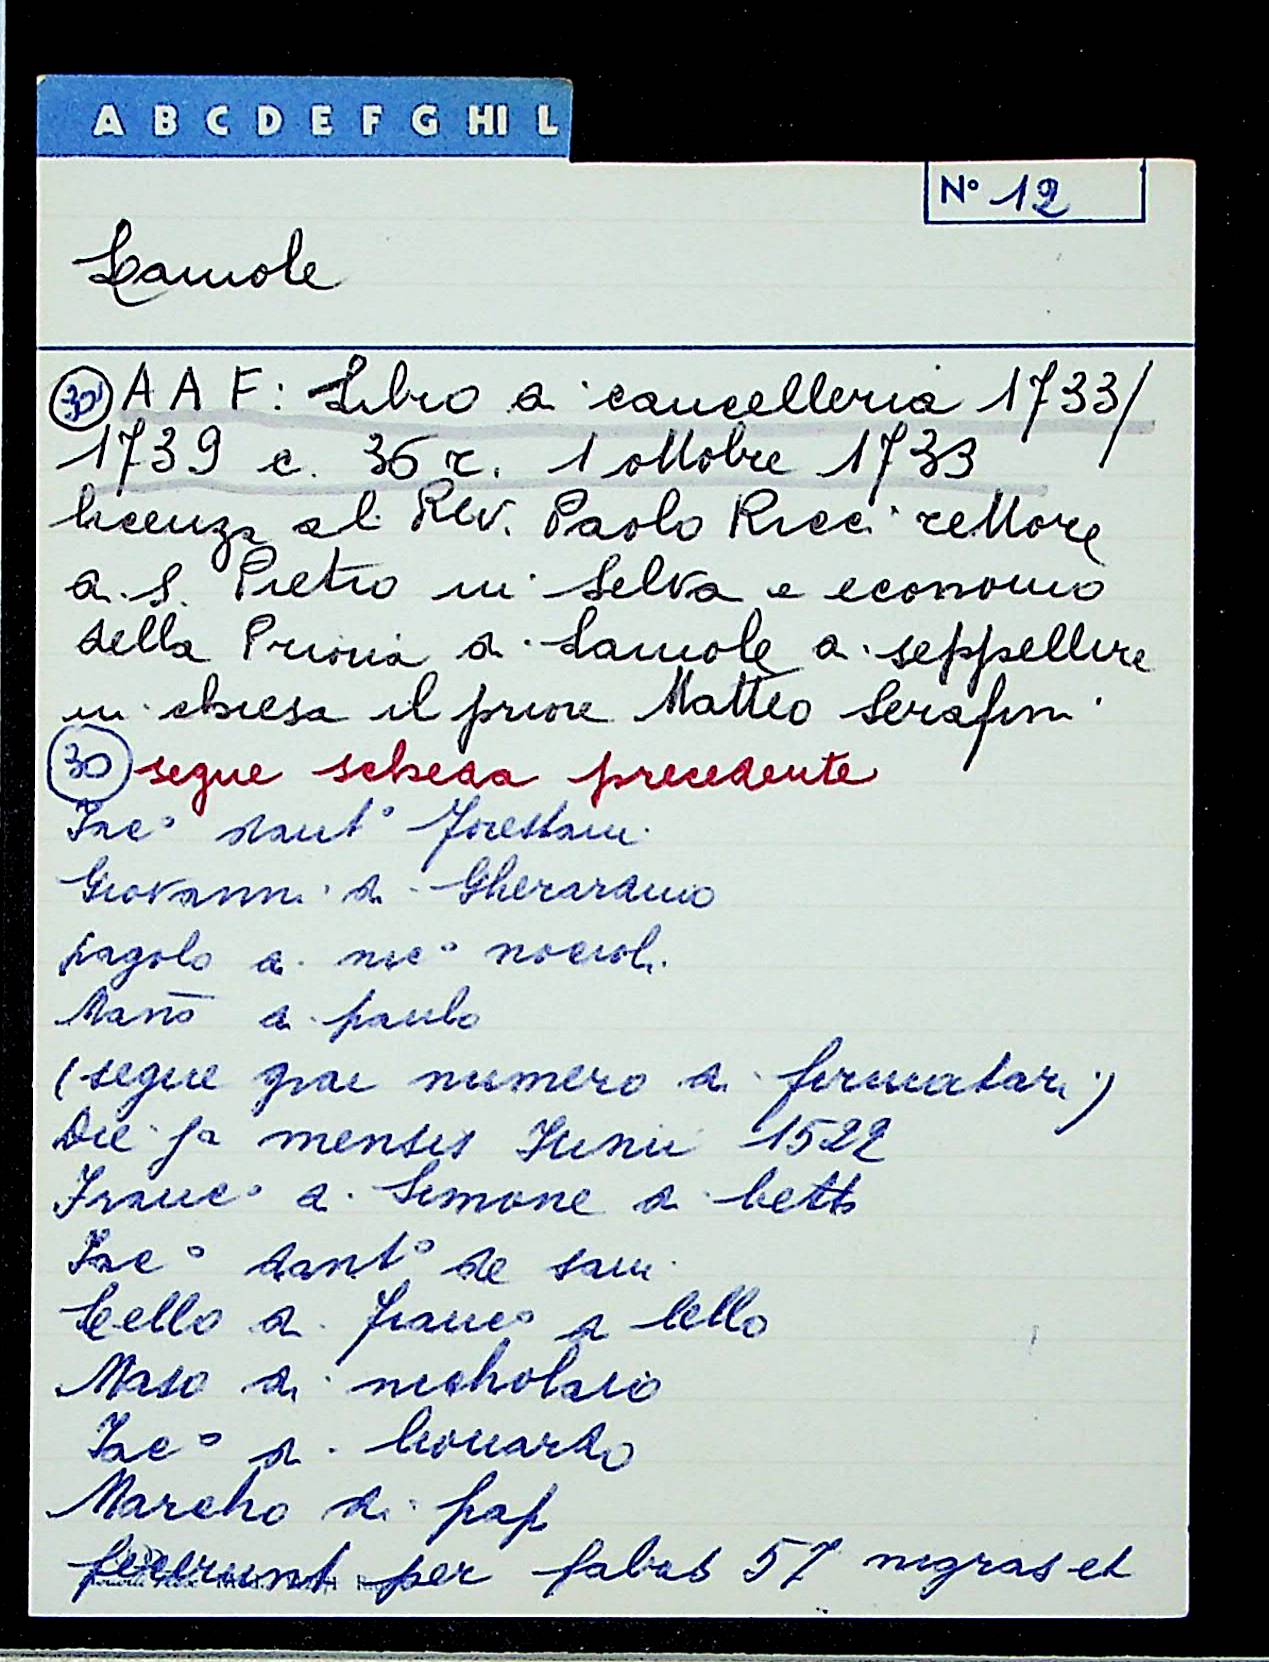 A B C D E F G HI L
N° 12
Lamole
30' A A F: Libro di cancelleria 1733/
1739 c. 36 r. 1 ottobre 1733
licenza al Rev. Paolo Ricci rettore
di S. Pietro in Selva e economo
della Prioria di Lamole di seppellire
in chiesa il priore Matteo Serafini
30 segue scheda precedente
Iac° dant° forestani
Giovanni di Gherardino
pagolo di nic°
di paulo
(segue gran numero di firmatari)
Die pa mensis Iunii 1522
Franc° di Simone di betto
Iac° dant° de
Cello di franc° di cello
Maso di nicholaio
Iac° di lionardo
Marcho di pap
fecerunt per fabas 57 nigras et